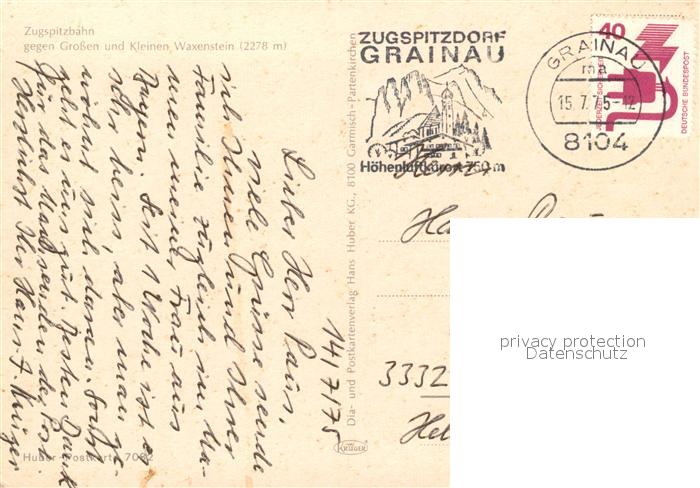 Zugspitzbahn
gegen Großen und Kleinen Waxenstein (2278 m)
ZUGSPITZDORF
GRAINAU
Höhenluftkurort 750 m
GRAINAU
ma
15.7.75-12
8104
40
JEDERZEIT SICHERHEIT
DEUTSCHE BUNDESPOST
14/7/75
Lieber Herr Paus,
viele Grüsse sende
ich Ihnen und Ihrer
Familie zugleich im Na-
men meiner Frau aus
Bayern. Seit 1 Woche ist es
sehr heiss aber man ge-
wöhnt sich daran. Sonst
geht es uns gut. Besten Dank
für das Nachsenden der Post
Herzlichst Ihr Hans J. Krüger
Dia- und Postkartenverlag Hans Huber KG., 8100 Garmisch-Partenkirchen
Herrn
3332
Hel
KRÜGER
Huber-Postkarte 7092
privacy protection
Datenschutz